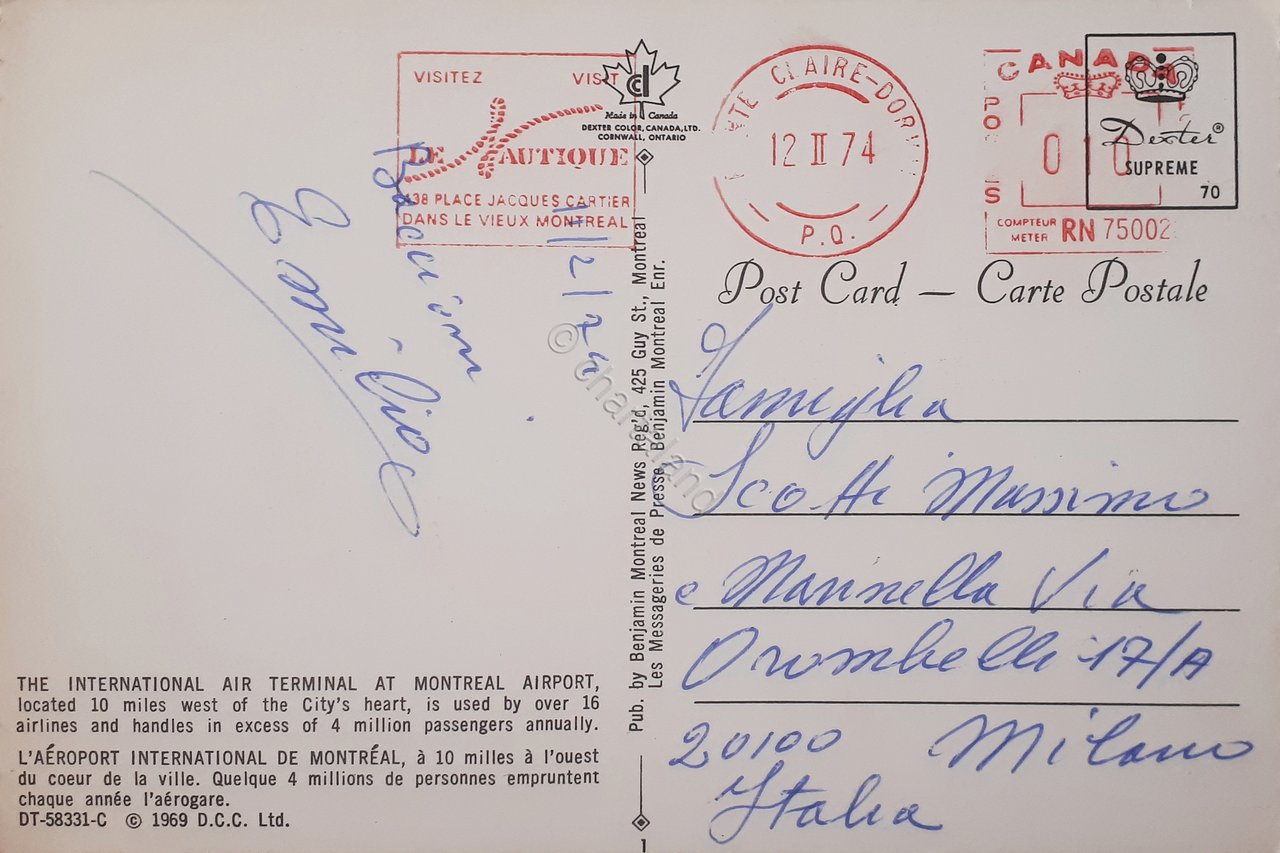 VISITEZ VISIT
LE NAUTIQUE
438 PLACE JACQUES CARTIER
DANS LE VIEUX MONTREAL
cd
Made in Canada
DEXTER COLOR, CANADA, LTD.
CORNWALL, ONTARIO
STE CLAIRE-DORV
12 II 74
P.Q.
CANADA
POS
010
COMPTEUR
METER RN 75002
Dexter®
SUPREME
70
Post Card — Carte Postale
11/2/74
Bacioni
Famiglia
Scotti Massimo
e Marinella Via
Orombelli 17/A
20100 Milano
Italia
Pub. by Benjamin Montreal News Reg'd, 425 Guy St., Montreal
Les Messageries de Presse Benjamin Montreal Enr.
© chartaland
THE INTERNATIONAL AIR TERMINAL AT MONTREAL AIRPORT,
located 10 miles west of the City's heart, is used by over 16
airlines and handles in excess of 4 million passengers annually.
L'AÉROPORT INTERNATIONAL DE MONTRÉAL, à 10 milles à l'ouest
du coeur de la ville. Quelque 4 millions de personnes empruntent
chaque année l'aérogare.
DT-58331-C © 1969 D.C.C. Ltd.
1